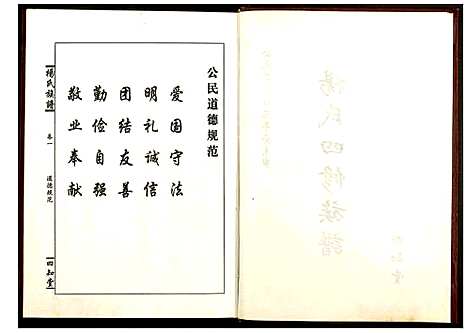 公民道德规范
爱国守法
明礼诚信
团结友善
勤俭自强
敬业奉献
楊氏族譜
卷一
道德规范
四知堂
楊氏四修族譜